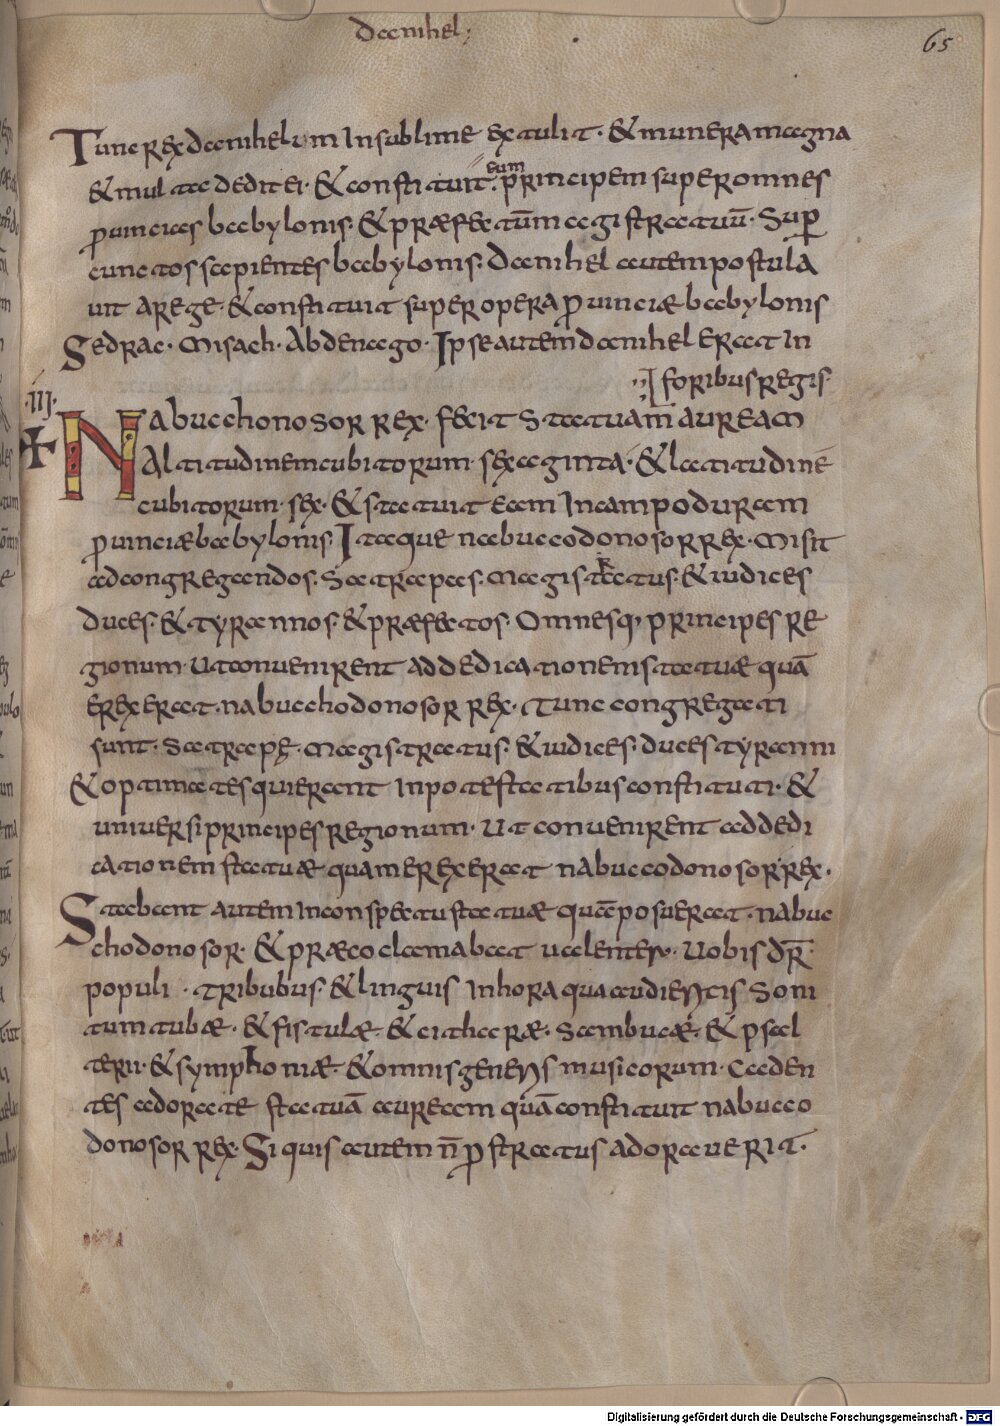 Danihel;
65
Tunc rex danihelum In sublime extulit· & munera magna
& multa dedit ei· & constituit eum principem super omnes
ꝓuincias babylonis· & præfectūm magistratuū· Suꝑ
cunctos sapientes babylonis· danihel autem postula
uit a rege· & constituit super opera ꝓuinciæ babylonis
Sedrac· Misach· Abdenago· Ipse autem danihel erat In
foribus regis·
·III·
Nabuchonosor rex· fecit Statuam auream
Altitudinem cubitorum· sexaginta· & latitudinē
cubitorum· sex· & statuit eam In campo duram
ꝓuinciæ babylonis· Itaque nabuccodonosor rex· misit
ad congregandos· Satrapas· magistratus· & iudices
duces· & tyrannos· & præfectos· Omnesq; principes re
gionum· Ut conuenirent ad dedicationem statuæ quā
erexerat· nabuchodonosor rex· Tunc congregati
sunt· Satrapę· magistratus· & iudices· duces tyranni
& optimates qui erant In potestatibus constituti· &
uniuersi principes regionum· Ut conuenirent ad dedi
cationem statuæ quam erexerat nabuccodonosor rex·
Stabant autem In conspectu statuæ quā posuerat· nabuc
chodonosor· & præco clamabat ualenter· Uobis dr̄·
populi · tribubus· & linguis In hora qua audientis soni
tum tubæ· & fistulæ· & citharæ· Sambucæ· & psal
terii· & symphoniæ· & omnis generis musicorum· Caden
tes adorate statuā auream quā constituit nabucco
donosor rex· Si quis autem n̄ ꝓstratus adorauerit·
Digitalisierung gefördert durch die Deutsche Forschungsgemeinschaft - DFG